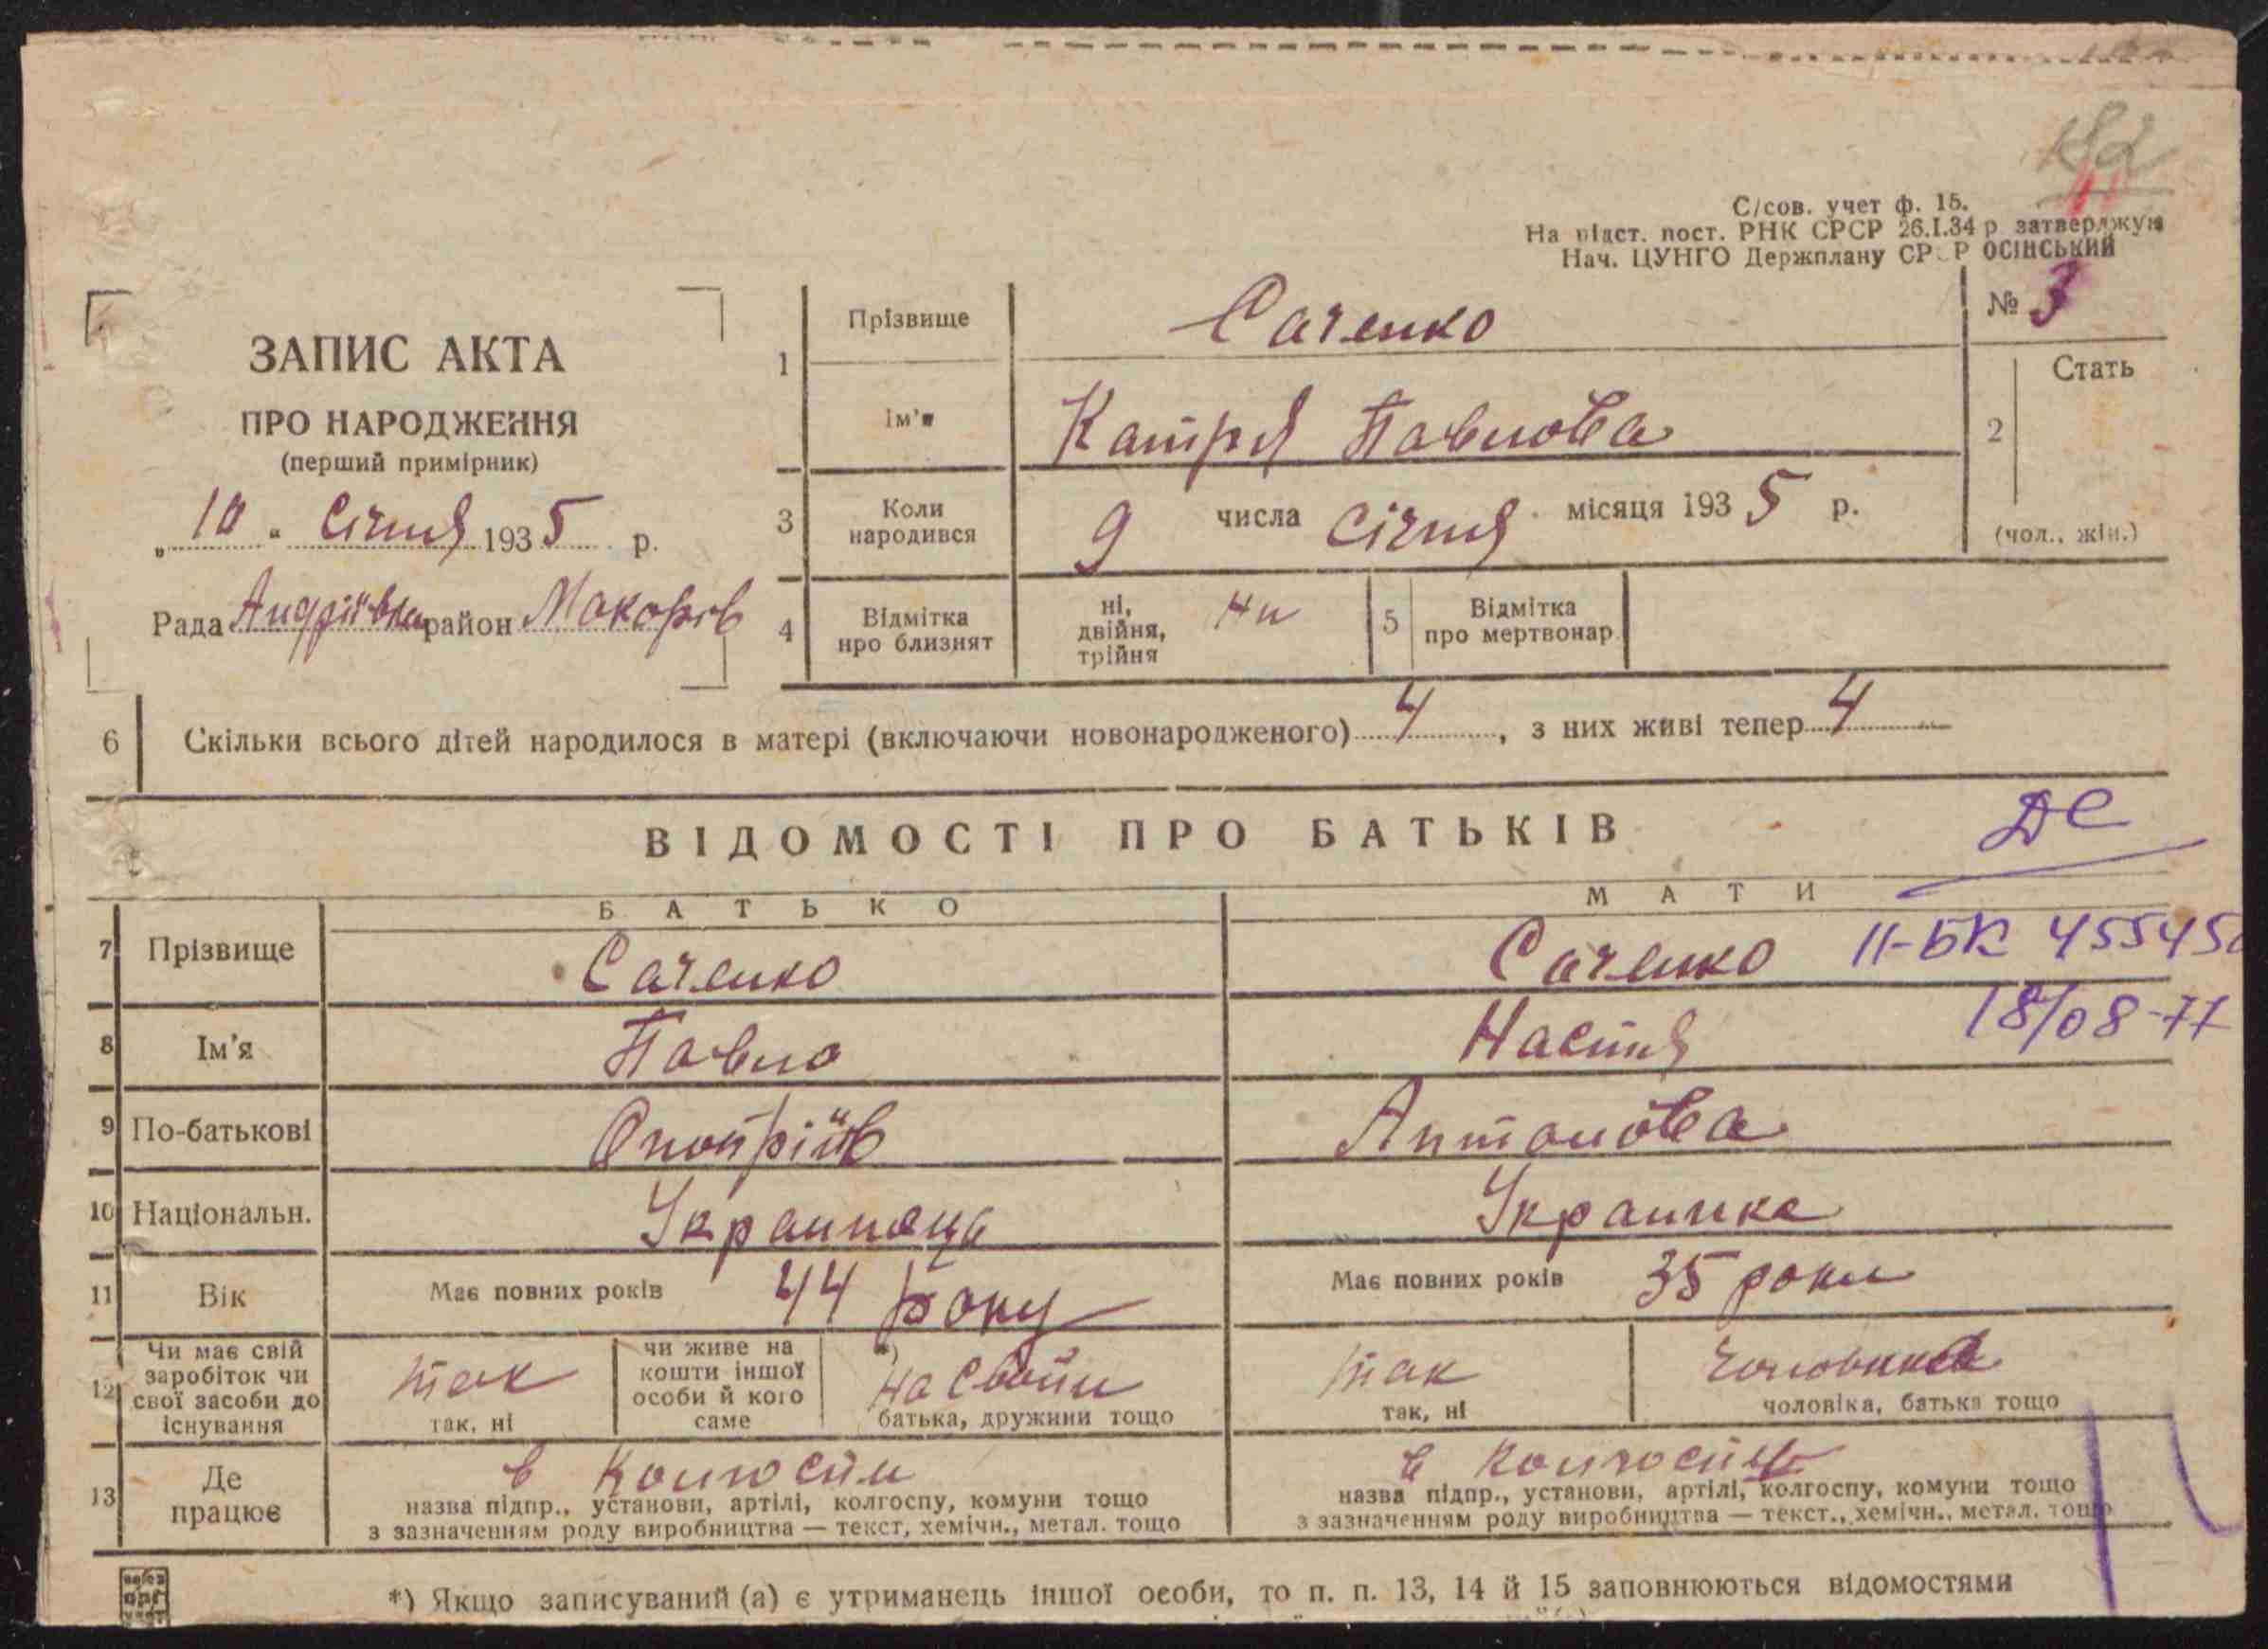 С/сов. учет ф. 15.
На підст. пост. РНК СРСР 26.I.34 р. затверджую
Нач. ЦУНГО Держплану СРСР ОСІНСЬКИЙ
ЗАПИС АКТА
ПРО НАРОДЖЕННЯ
(перший примірник)
„10“ Січня 1935 р.
Рада Андріївка район Макорів
1 Прізвище Саченко № 3
Ім'я Катря Павлова
2 Стать
(чол., жін.)
3 Коли народився 9 числа Січня місяця 1935 р.
4 Відмітка про близнят ні, двійня, трійня Ни 5 Відмітка про мертвонар.
6 Скільки всього дітей народилося в матері (включаючи новонародженого) 4, з них живі тепер 4
ВІДОМОСТІ ПРО БАТЬКІВ
ДС
БАТЬКО МАТИ
7 Прізвище Саченко Саченко II-БК 45545
8 Ім'я Павло Настя 18/08-77
9 По-батькові Онопріїв Антонова
10 Національн. Украинець Украинка
11 Вік Має повних років 44 року Має повних років 35 роки
12 Чи має свій заробіток чи свої засоби до існування так так, ні чи живе на кошти іншої особи й кого саме *) на свойи батька, дружини тощо так так, ні чоловика чоловіка, батька тощо
13 Де працює в колгоспи в колгоспи
назва підпр., установи, артілі, колгоспу, комуни тощо назва підпр., установи, артілі, колгоспу, комуни тощо
з зазначенням роду виробництва — текст, хемічн., метал. тощо з зазначенням роду виробництва — текст., хемічн., метал. тощо
*) Якщо записуваний (а) є утриманець іншої особи, то п. п. 13, 14 й 15 заповнюються відомостями